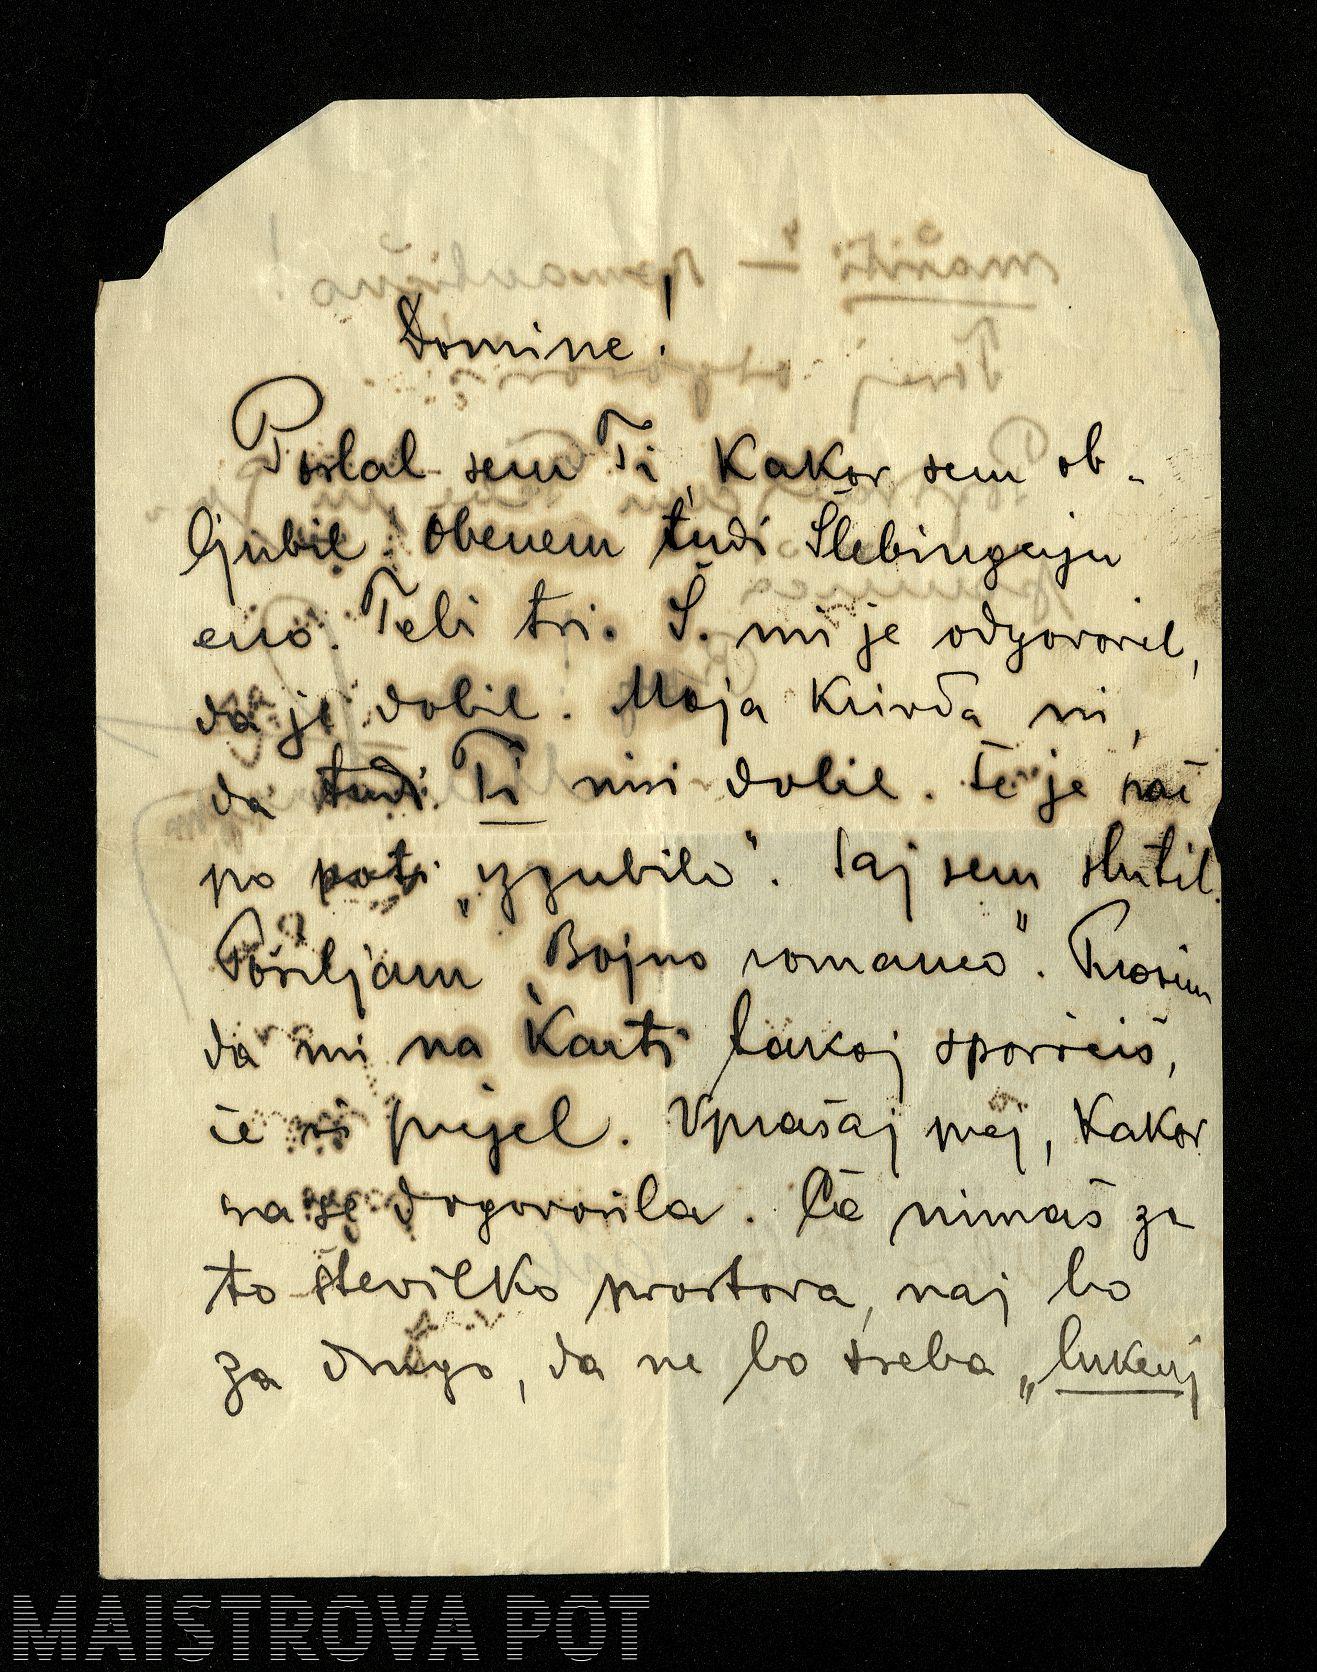 Domine!
Poslal sem Ti, kakor sem ob-
ljubil. Obenem tudi Šlebingerju
eno. Tebi tri. Š. mi je odgovoril,
da je dobil. Moja krivda ni,
da tudi Ti nisi dobil. Te je
po poti „izgubilo”. Saj sem slutil.
Pošiljam „Bojno romanco”. Prosim
da mi na karti takoj sporočiš,
če si prejel. Vprašaj prej, kakor
sa se dogovorila. Če nimaš za
to številko prostora, naj bo
za drugo, da ne bo treba „lukenj
MAISTROVA POT